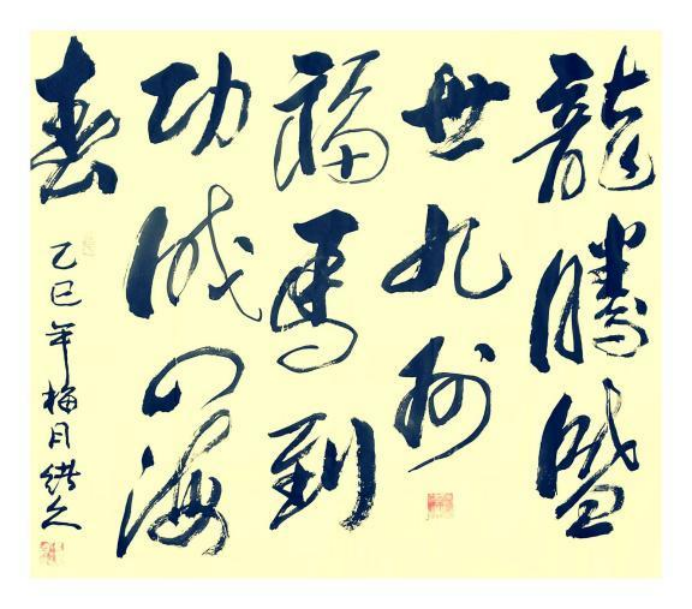 龍騰盛
世九州
福馬到
功成四海
春
乙巳年梅月